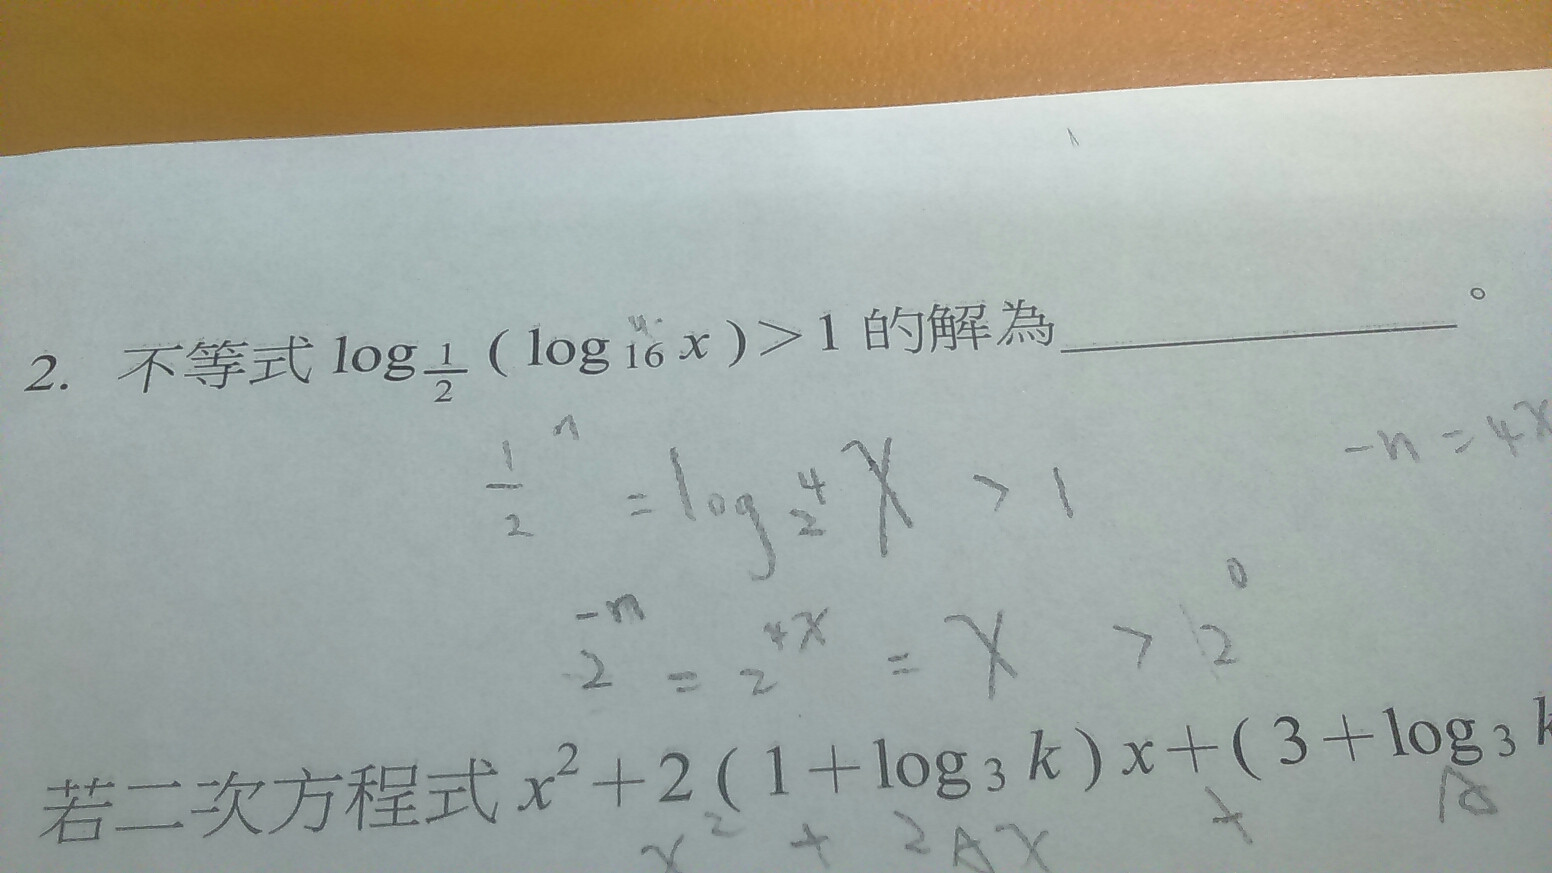 2. 不等式 log 1/2 ( log 16 x ) > 1 的解為__________。
1/2 ⁿ = log 2⁴ X > 1
-n = 4X
2⁻ⁿ = 2⁴ˣ = X > 2⁰
若二次方程式 x² + 2 ( 1 + log₃ k ) x + ( 3 + log₃ k
x² + 2AX +